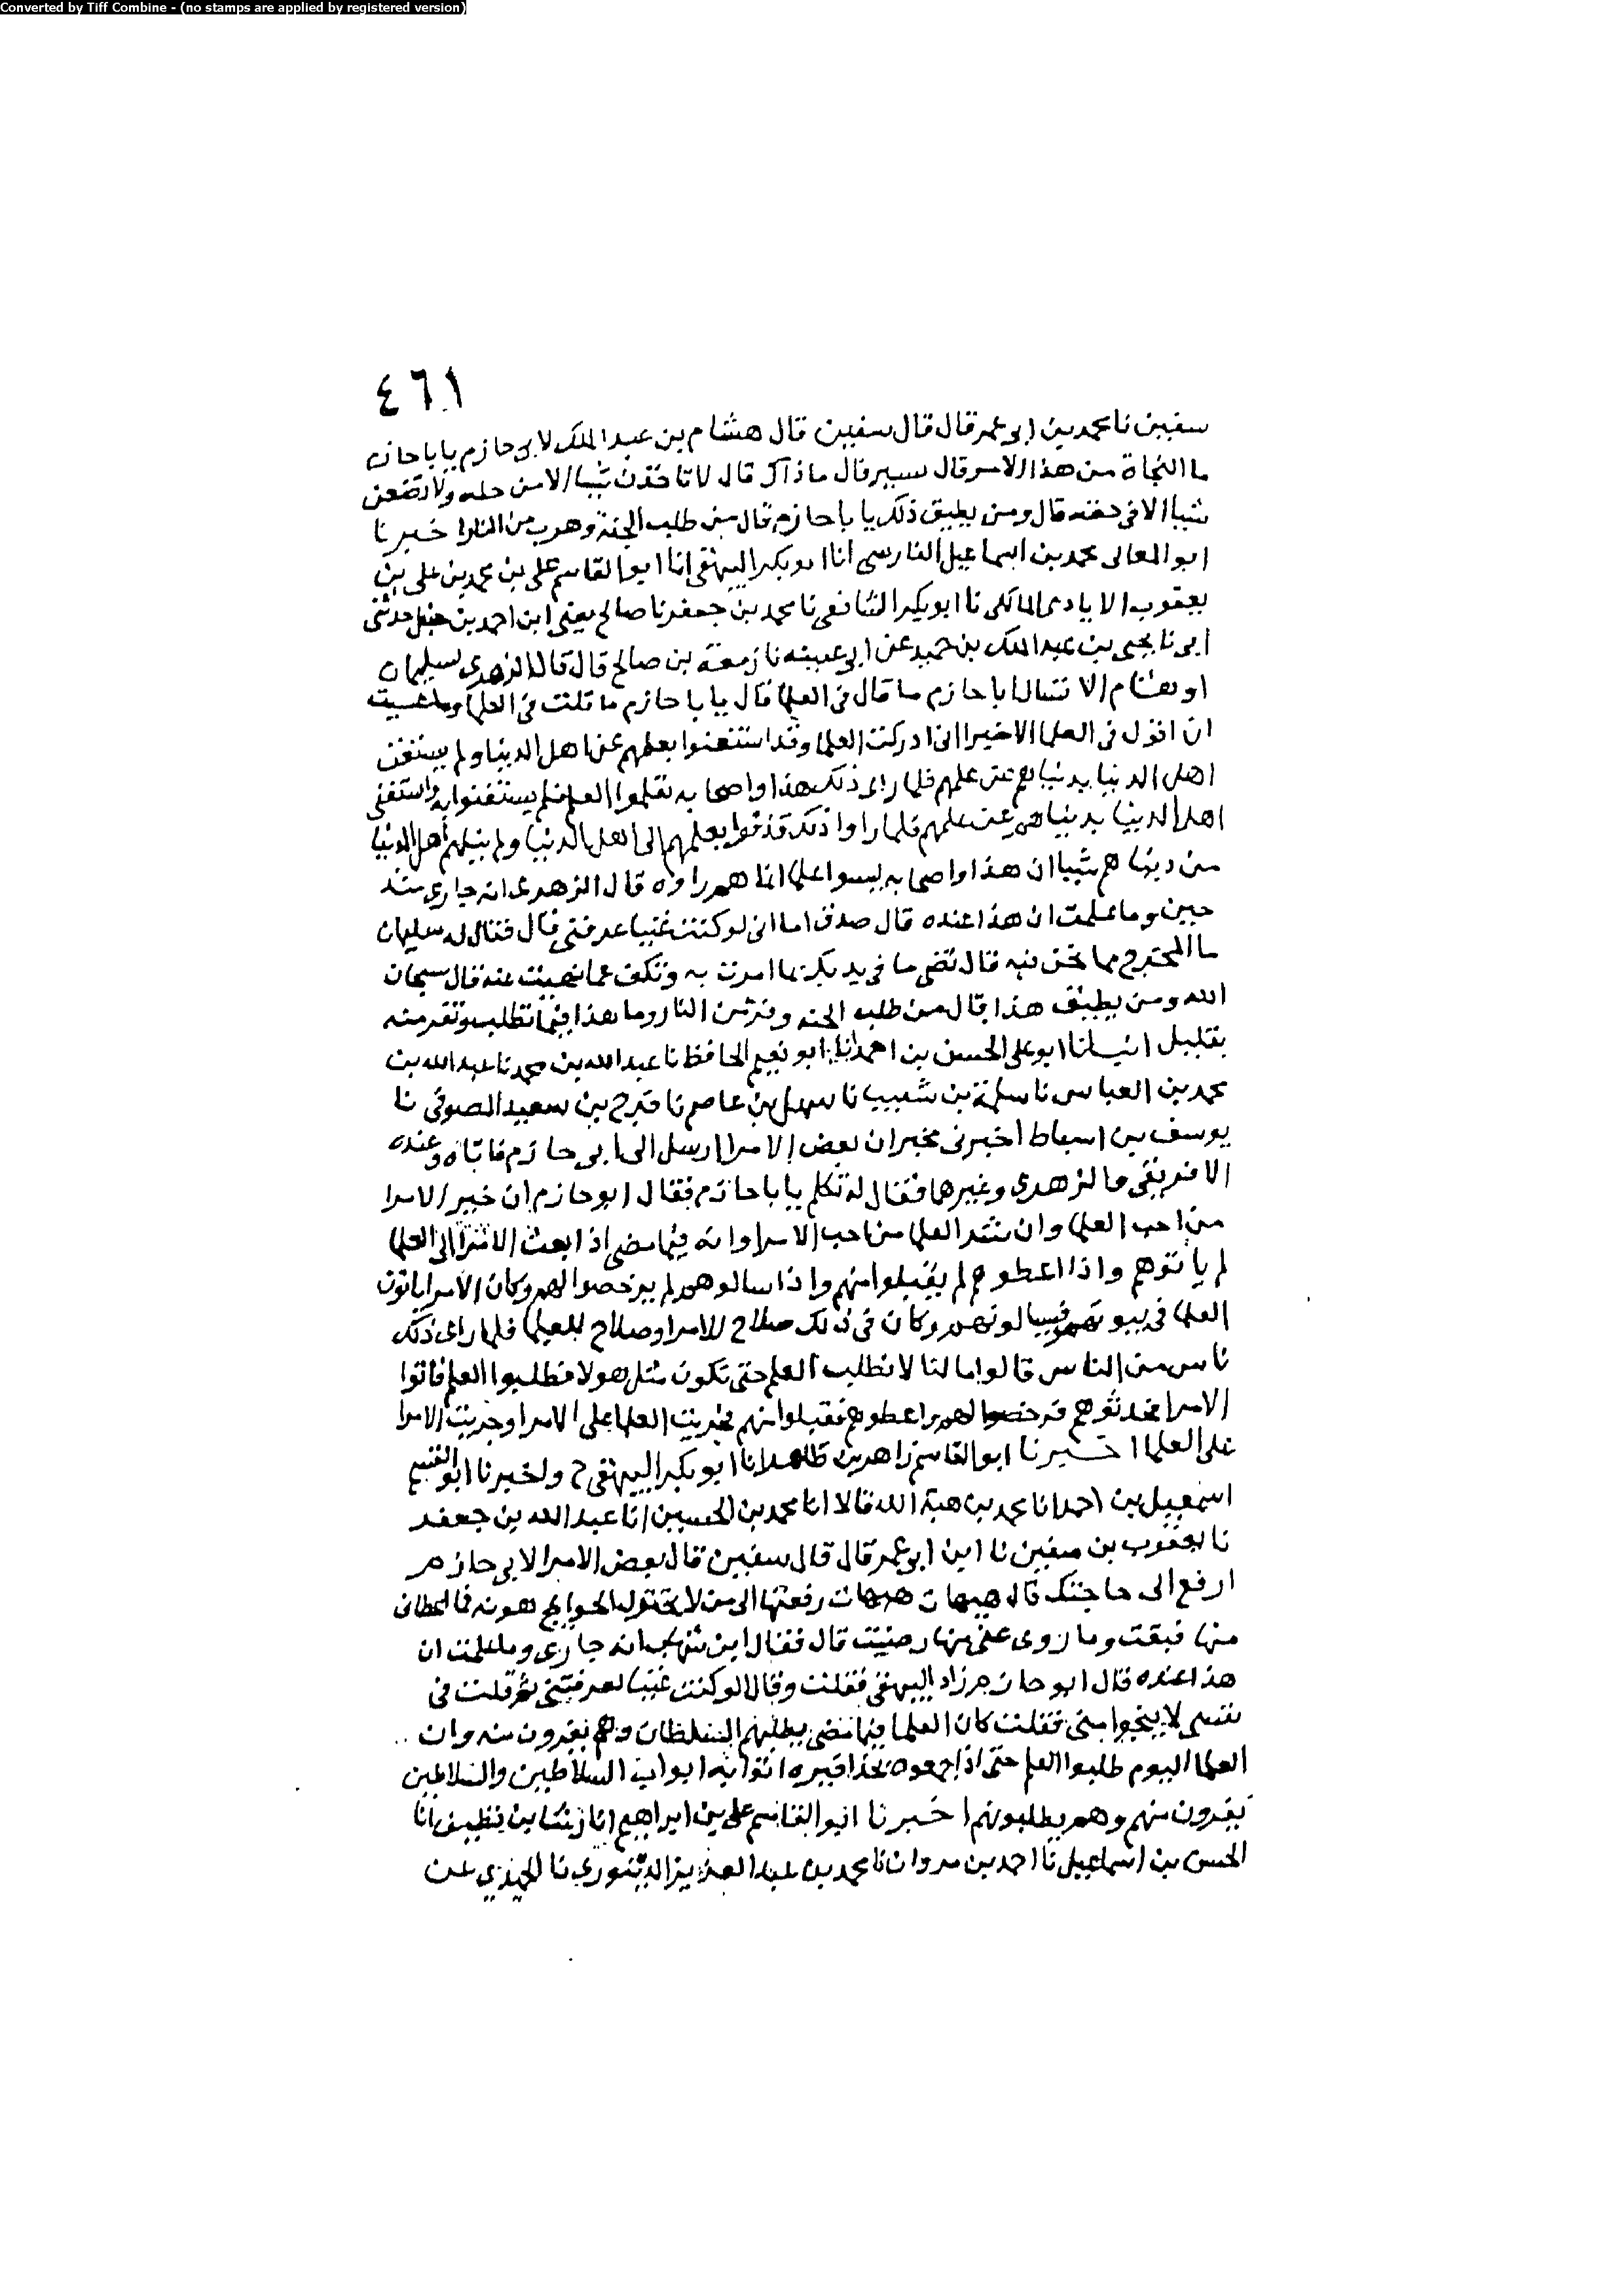 Converted by Tiff Combine - (no stamps are applied by registered version)
٤٦١
سفيين نا محمد بن ابي عمر قال قال سفيين قال هشام بن عبد الملك لابي حازم يا با حازم
ما النجاة من هذا الامر قال يسير قال ما ذاك قال لا تاخذن شيا الا من حله ولا تضعن
شيا الا في حقه قال ومن يطيق ذلك يا با حازم قال من طلب الجنة وهرب من النار اخبرنا
ابو المعالي محمد بن اسماعيل الفارسي انا ابو بكر البيهقي انا ابو القاسم علي بن محمد بن علي بن
يعقوب الايادي المالكي نا ابو بكر الشافعي نا محمد بن جعفر نا صالح يعني ابن احمد بن حنبل حدثني
ابي نا يحيى بن عبد الملك بن حميد عن ابي عيينه نا زمعة بن صالح قال قال الزهري لسليمان
او هشام الا تسال ابا حازم ما قال في العلما قال يا با حازم ما قلت في العلما وما عسيت
ان اقول في العلما الا خيرا اني ادركت العلما وقد استغنوا بعلمهم عن اهل الدنيا ولم يستغن
اهل الدنيا بدنياهم عن علمهم فلما راى ذلك هذا واصحابه تعلموا العلم فلم يستغنوا به واستغنى
اهل الدنيا بدنياهم عن علمهم فلما راوا ذلك قذفوا بعلمهم الى اهل الدنيا ولم ينلهم اهل الدنيا
من دنياهم شيا ان هذا واصحابه ليسوا علما انما هم رواه قال الزهري انه جاري منذ
حين وما علمت ان هذا عنده قال صدق اما اني لو كنت غنيا عرفني قال فقال له سليمان
ما المخرج مما نحن فيه قال تمضي ما في يديك بما امرت به وتكف عما نهيت عنه قال سبحان
الله ومن يطيق هذا قال من طلب الجنه وفر من النار وما هذا فيما تطلب وتفر منه
بقليل انبانا ابو علي الحسن بن احمد انا ابو نعيم الحافظ نا عبد الله بن محمد نا عبد الله بن
محمد بن العباس نا سلمة بن شبيب نا سهل بن عاصم نا فرج بن سعيد الصوفي نا
يوسف بن اسباط اخبرني مخبر ان بعض الامرا ارسل الى ابي حازم فاتاه وعنده
الافريقي والزهري وغيرهما فقال له تكلم يا با حازم فقال ابو حازم ان خير الامرا
من احب العلما وان شر العلما من احب الامرا وانه فيما مضى اذا بعث الامرا الى العلما
لم ياتوهم واذا اعطوهم لم يقبلوا منهم واذا سالوهم لم يرخصوا لهم وكان الامرا ياتون
العلما في بيوتهم فيسالونهم وكان في ذلك صلاح للامرا وصلاح للعلما فلما راى ذلك
ناس من الناس قالوا ما لنا لا نطلب العلم حتى نكون مثل هولا فطلبوا العلم فاتوا
الامرا فحدثوهم فرخصوا لهم واعطوهم فقبلوا منهم فجريت العلما على الامرا وجريت الامرا
على العلما اخبرنا ابو القاسم زاهر بن طاهر انا ابو بكر البيهقي ح واخبرنا ابو القسم
اسمعيل بن احمد انا محمد بن هبة الله قالا انا محمد بن الحسين انا عبد الله بن جعفر
نا يعقوب بن سفين نا ابن ابي عمر قال قال سفيين قال بعض الامرا لابي حازم
ارفع الي حاجتك قال هيهات هيهات رفعتها الى من لا تختزل الحوايج دونه فما اعطاني
منها قنعت وما زوى عني منها رضيت قال فقال ابن شهاب انه جاري وما علمت ان
هذا عنده قال ابو حازم زاد البيهقي فقلت وقالا لو كنت غنيا لعرفتني ثم قلت في
نفسي لا ينجوا مني فقلت كان العلما فيما مضى يطلبهم السلطان وهم يفرون منه وان
العلما اليوم طلبوا العلم حتى اذا جمعوه بحذافيره اتوا به ابواب السلاطين والسلاطين
يفرون منهم وهم يطلبونهم اخبرنا ابو القاسم علي بن ابراهيم انا رشا بن نظيف انا
الحسن بن اسماعيل نا احمد بن مروان نا محمد بن عبد العزيز الدينوري نا الحميدي عن